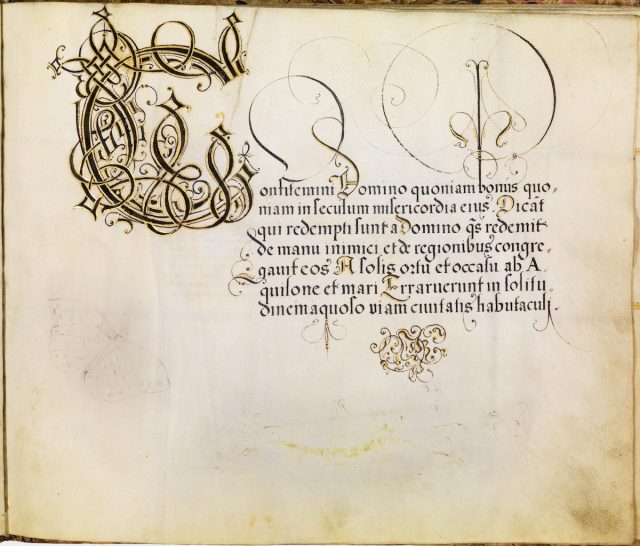 Confitemini Domino quoniam bonus quo-
niam in seculum misericordia eius. Dicāt
qui redempti sunt a Domino qs̄ redemit
de manu inimici et de regionibus congre-
gauit eos A solis ortu et occasu ab A-
quilone et mari Errauerunt in solitu-
dine inaquoso viam ciuitatis habitaculi.